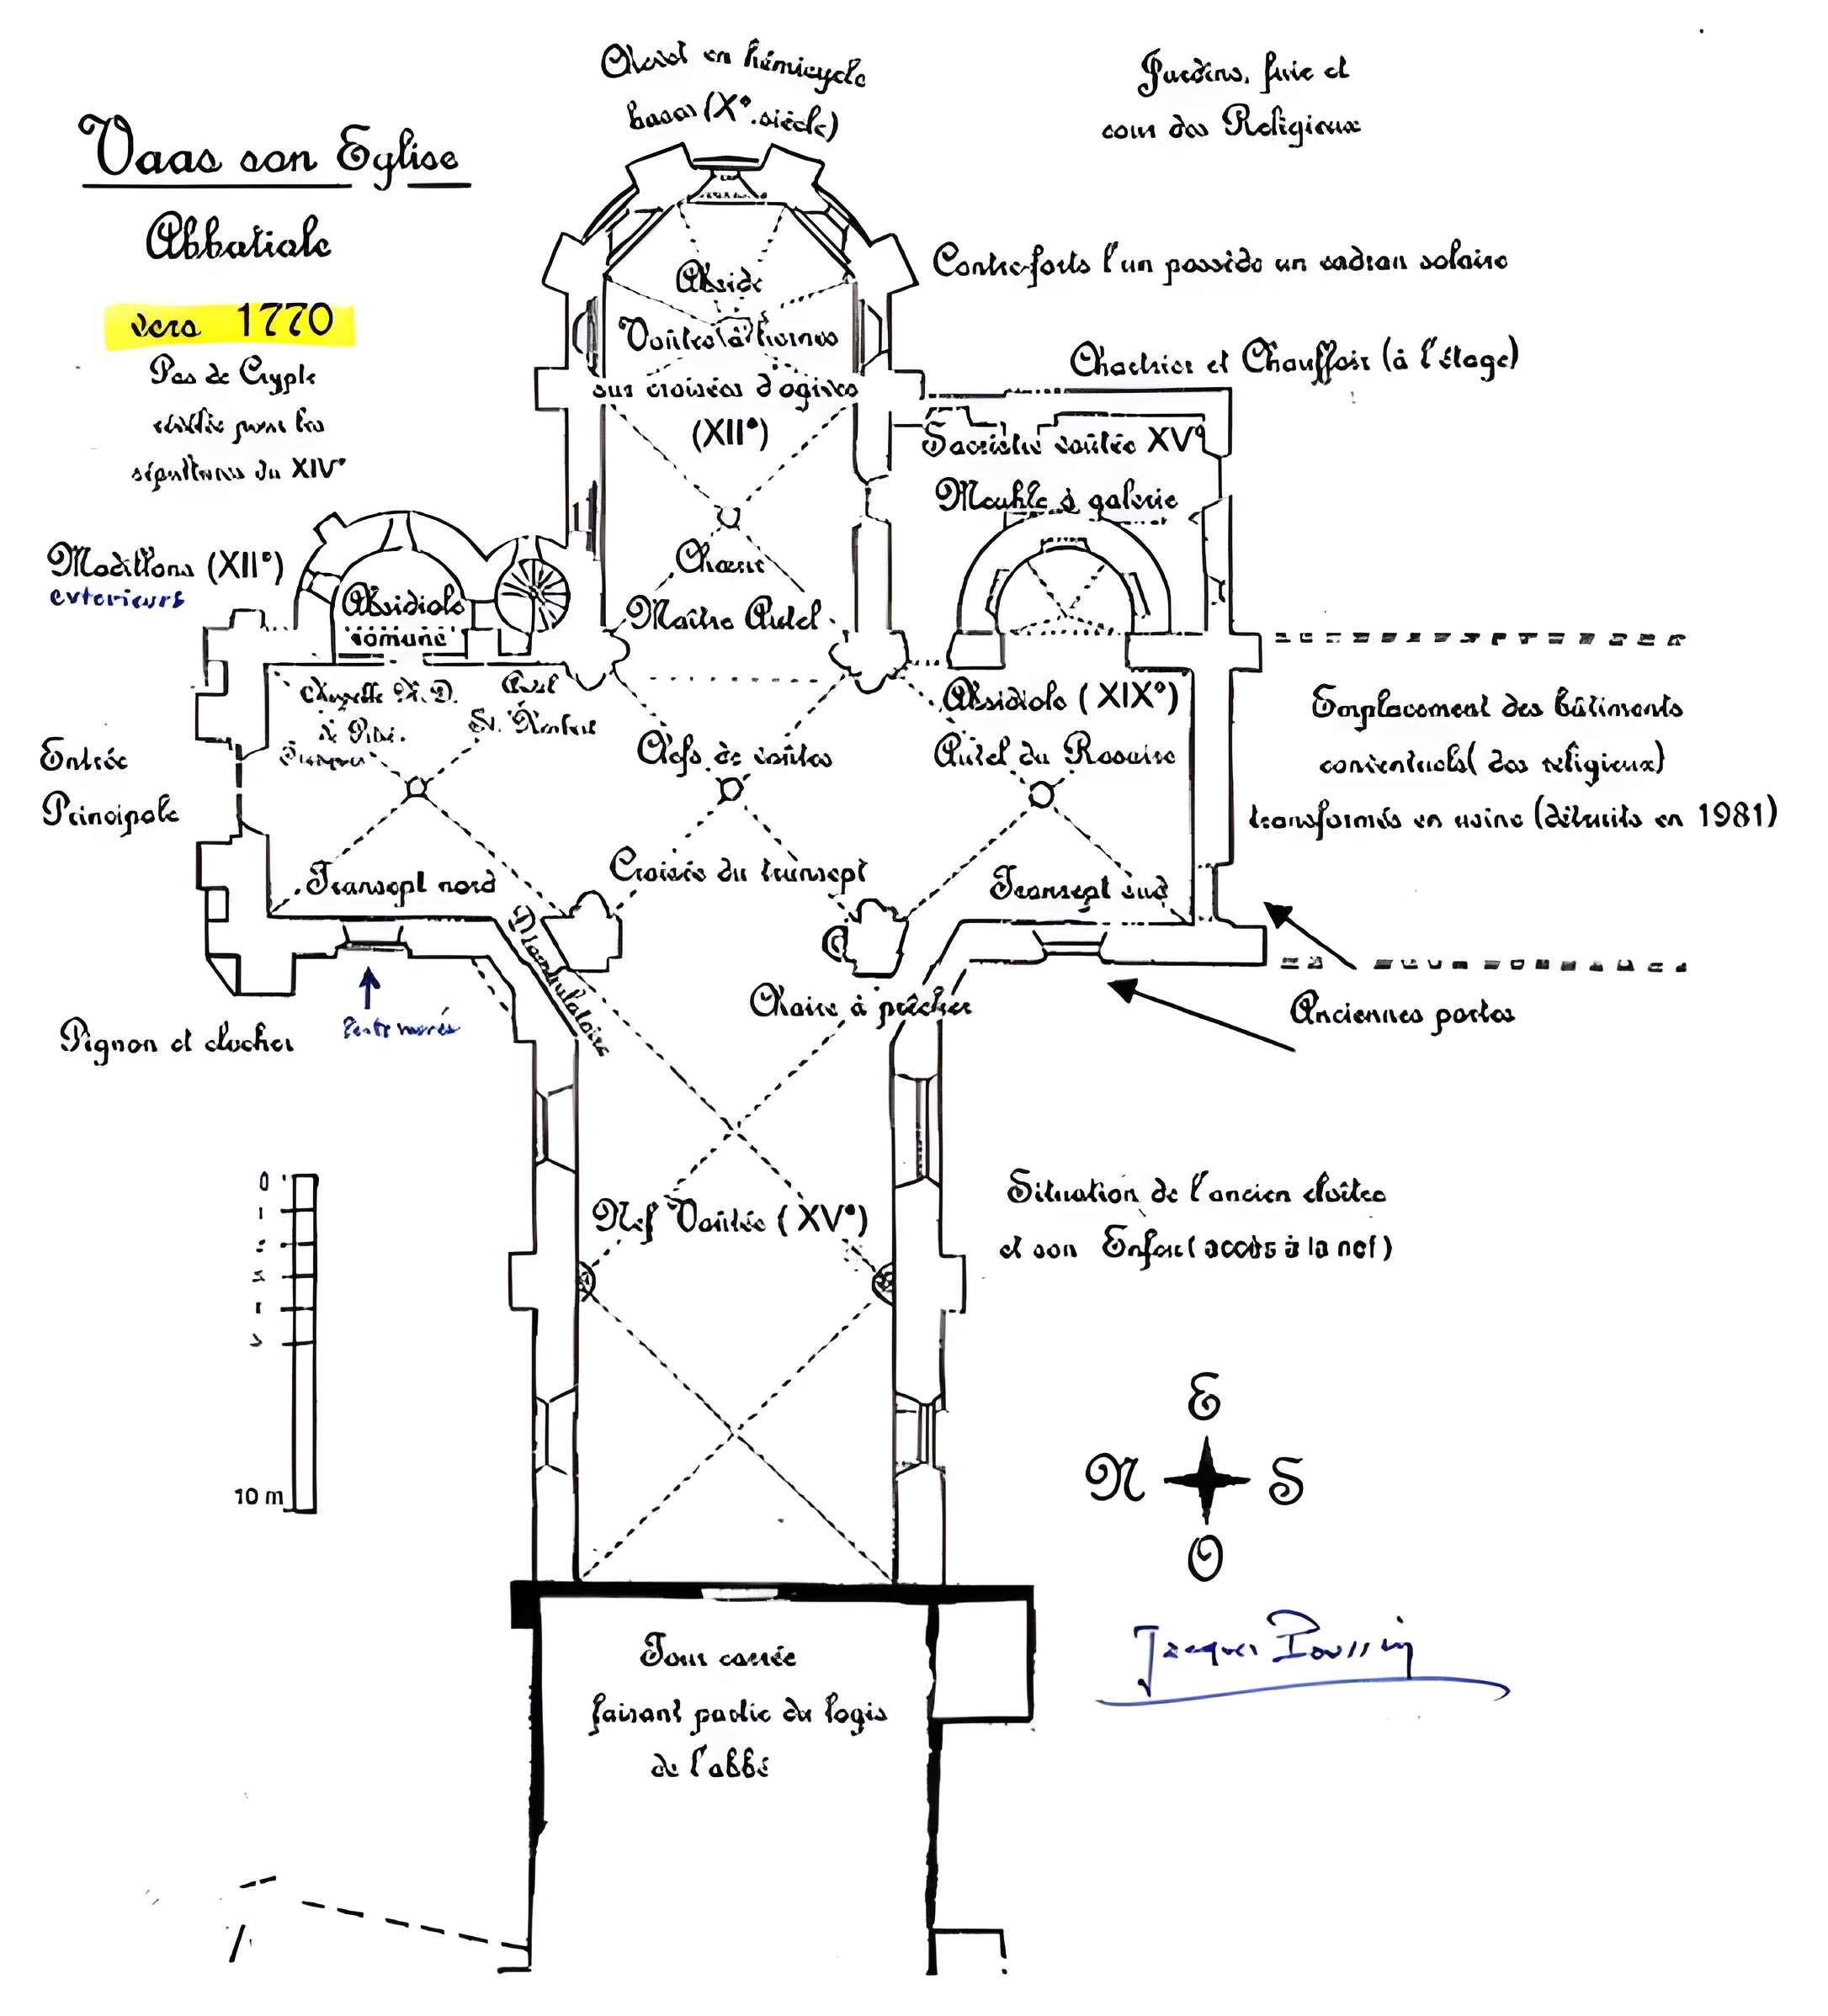 Vaas son Eglise
Abbatiale
vers 1770
Pas de Crypte
sépultures du XIV°
Chevet en hémicycle
bases (X° siècle)
Jardins, fuie et
cour des Religieux
Contreforts l'un possède un cadran solaire
Abside
Voûtes à nervures
sur croisées d'ogives
(XII°)
Chartrier et Chauffoir (à l'étage)
Sacristie voûtée XV°
Meuble à galerie
Modillons (XII°)
exterieurs
Absidiole
romane
Chœur
Maître Autel
Chapelle N.D.
de Pitié.
Autel
St.
Absidiole (XIX°)
Autel du Rosaire
Clefs de voûtes
Entrée
Principale
Emplacement des bâtiments
conventuels (des religieux)
transformés en usine (détruits en 1981)
Transept nord
Croisée du transept
Transept sud
Déambulatoire
Chaire à prêcher
Pignon et clocher
Anciennes portes
0
1
10 m
Nef Voûtée (XV°)
Situation de l'ancien cloître
et son Enfeu (accès à la nef)
E
N S
O
Jacques Poussin
Tour carrée
faisant partie du logis
de l'abbé